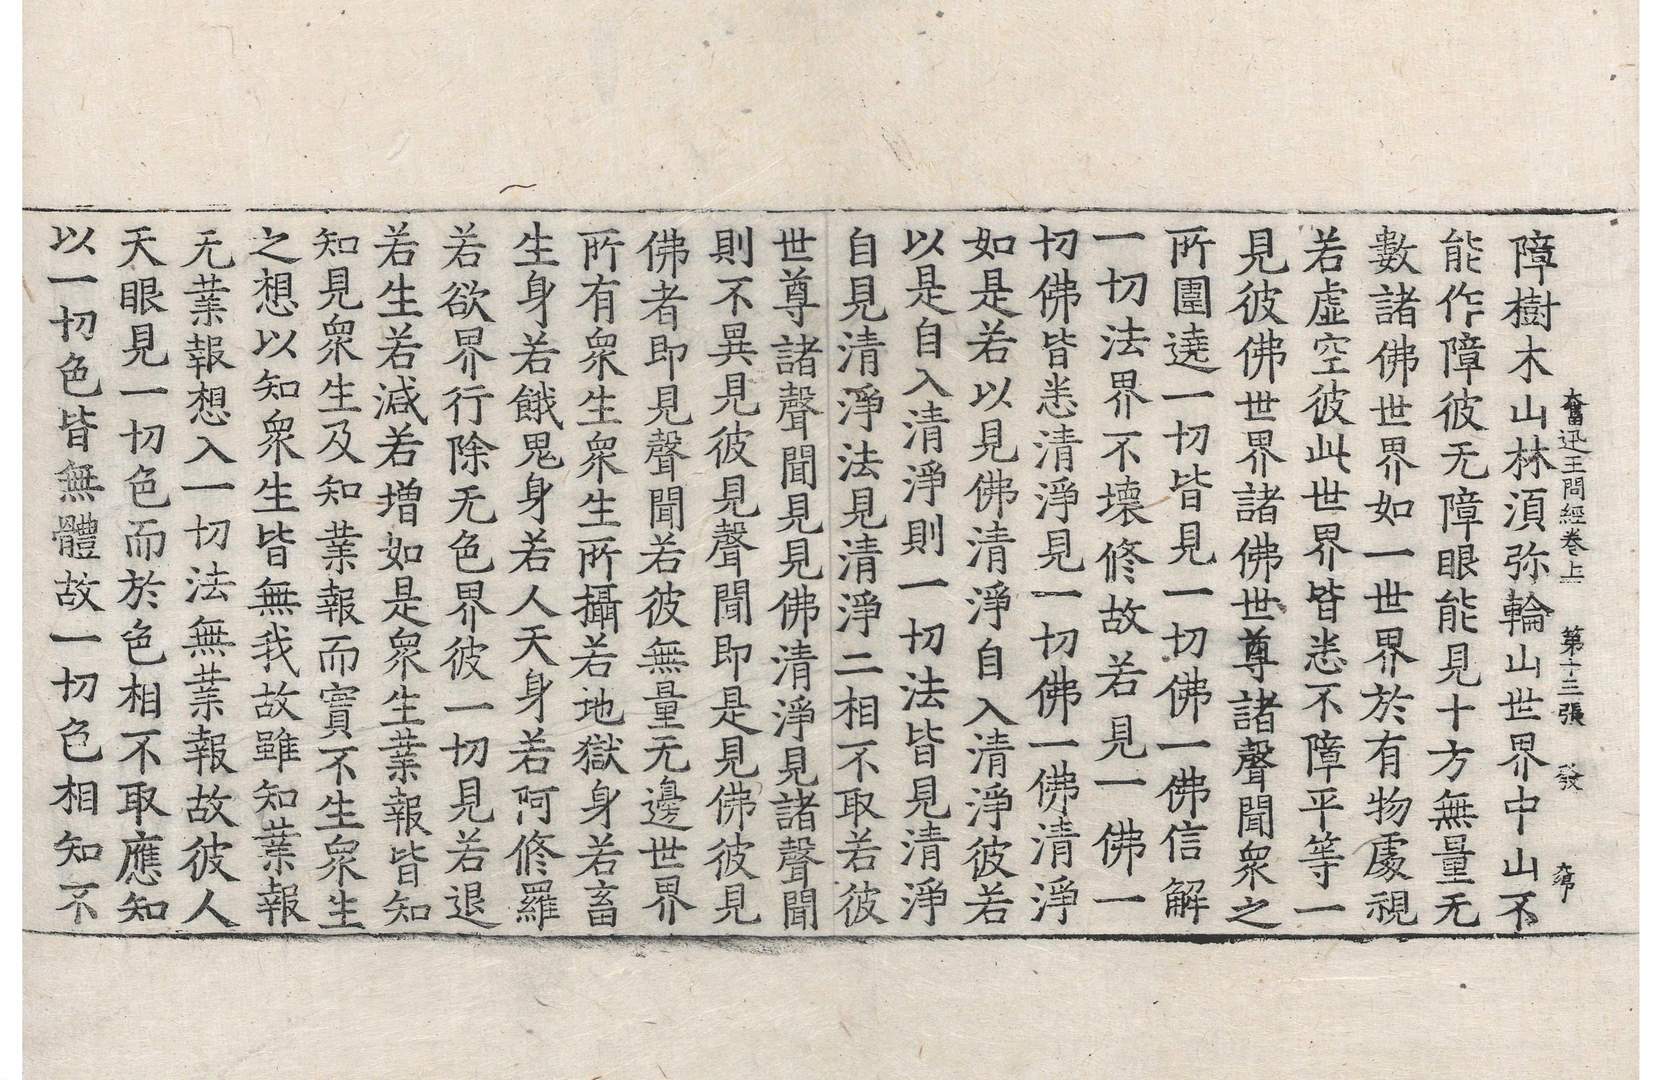 奮迅王問經卷上　第十三張　發
障樹木山林須弥輪山世界中山不
能作障彼无障眼能見十方無量无
數諸佛世界如一世界於有物處視
若虛空彼此世界皆悉不障平等一
見彼佛世界諸佛世尊諸聲聞衆之
所圍遶一切皆見一切佛一佛信解
一切法界不壞修故若見一佛一
切佛皆悉清淨見一切佛一佛清淨
如是若以見佛清淨自入清淨彼若
以是自入清淨則一切法皆見清淨
自見清淨法見清淨二相不取若彼
世尊諸聲聞見見佛清淨見諸聲聞
則不異見彼見聲聞即是見佛彼見
佛者即見聲聞若彼無量无邊世界
所有衆生衆生所攝若地獄身若畜
生身若餓鬼身若人天身若阿修羅
若欲界行除无色界彼一切見若退
若生若減若增如是衆生業報皆知
知見衆生及知業報而實不生衆生
之想以知衆生皆無我故雖知業報
无業報想入一切法無業報故彼人
天眼見一切色而於色相不取應知
以一切色皆無體故一切色相知不